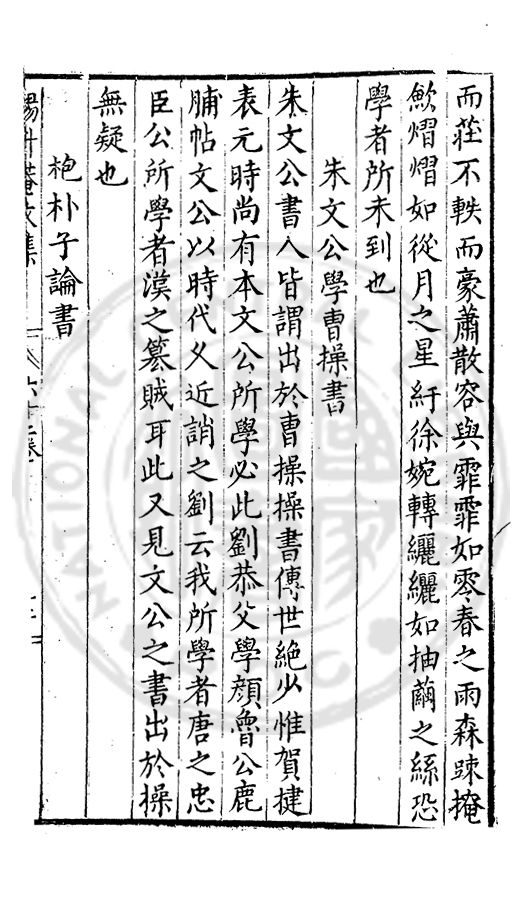 而莊不軼而豪蕭散容與霏霏如零春之雨森疎掩
歘熠熠如從月之星紆徐婉轉纚纚如抽繭之絲恐
學者所未到也
朱文公學曹操書
朱文公書人皆謂出於曹操操書傳世絶少惟賀捷
表元時尚有本文公所學必此劉恭父學顔魯公鹿
脯帖文公以時代乆近誚之劉云我所學者唐之忠
臣公所學者漢之簒賊耳此又見文公之書出於操
無疑也
抱朴子論書
NATIONAL